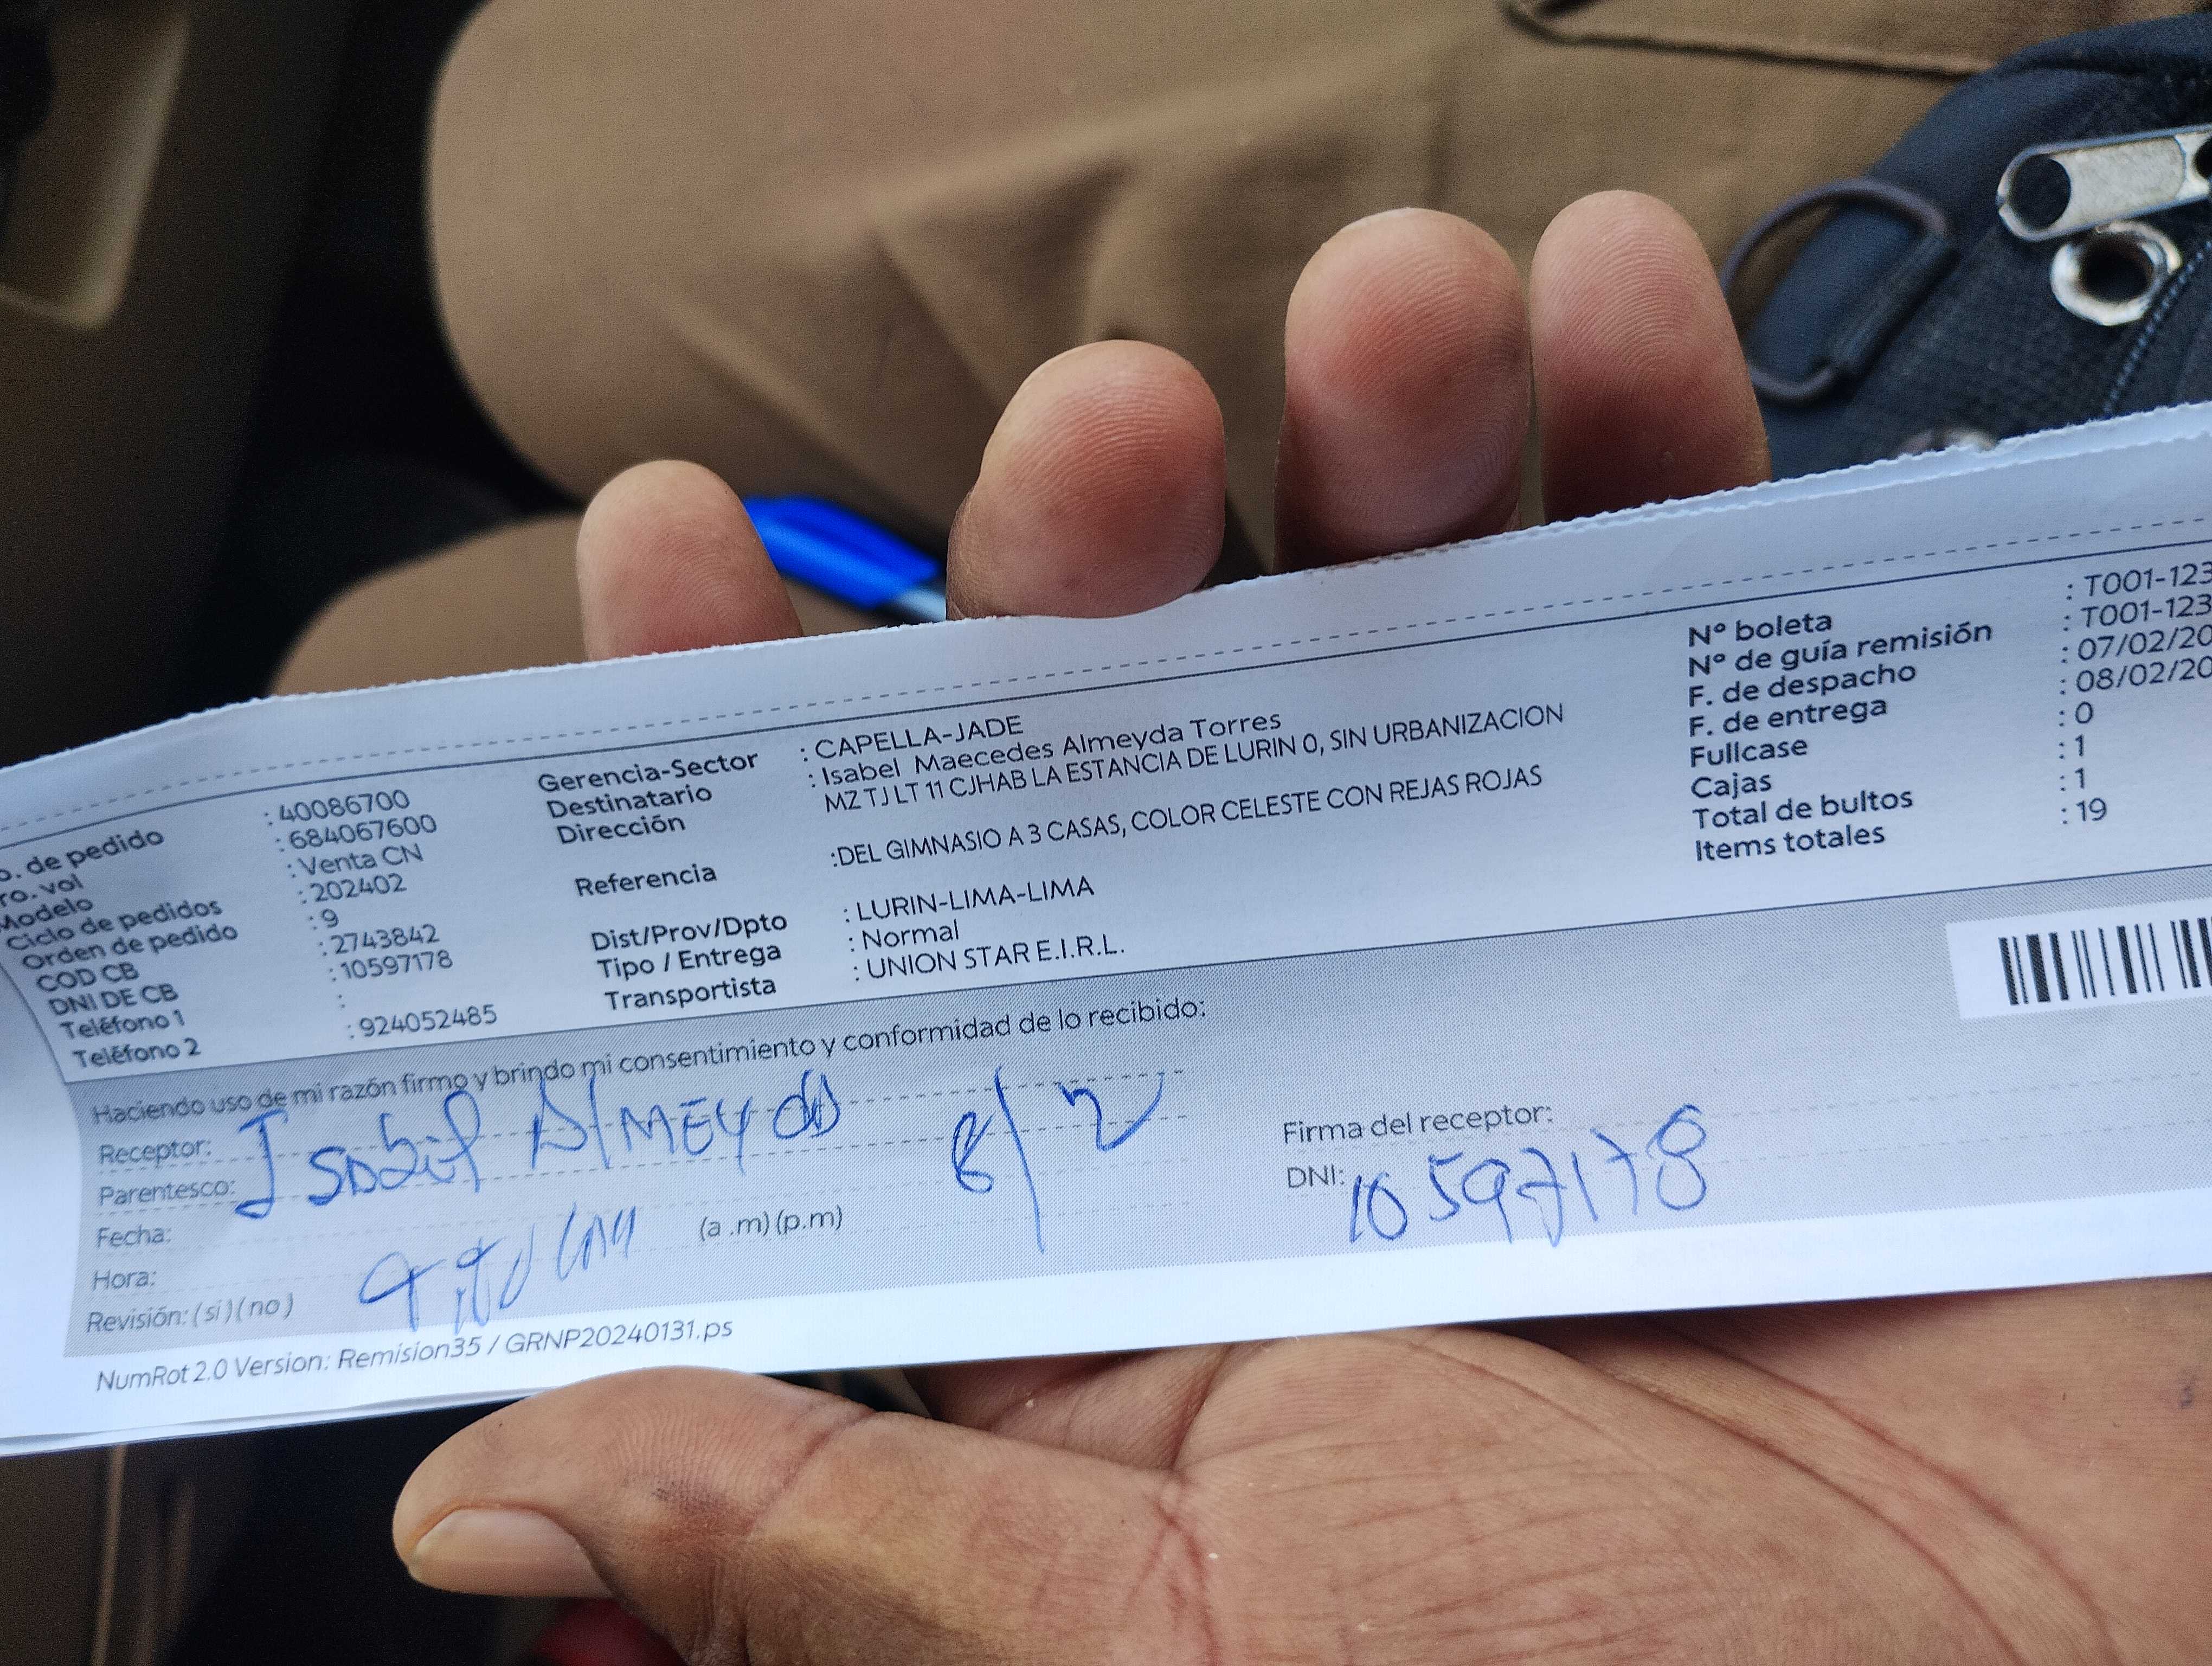 o. de pedido : 40086700
ro. vol : 684067600
Modelo : Venta CN
Ciclo de pedidos : 202402
Orden de pedido : 9
COD CB : 2743842
DNI DE CB : 10597178
Teléfono 1 :
Teléfono 2 : 924052485
Gerencia-Sector : CAPELLA-JADE
Destinatario : Isabel Maecedes Almeyda Torres
Dirección MZ TJ LT 11 CJHAB LA ESTANCIA DE LURIN 0, SIN URBANIZACION
Referencia :DEL GIMNASIO A 3 CASAS, COLOR CELESTE CON REJAS ROJAS
Dist/Prov/Dpto : LURIN-LIMA-LIMA
Tipo / Entrega : Normal
Transportista : UNION STAR E.I.R.L.
Nº boleta : T001-123
Nº de guía remisión : T001-123
F. de despacho : 07/02/20
F. de entrega : 08/02/20
Fullcase : 0
Cajas : 1
Total de bultos : 1
Items totales : 19
Haciendo uso de mi razón firmo y brindo mi consentimiento y conformidad de lo recibido:
Receptor: Isabel Almeyda
Parentesco:
Fecha: 8/2
Hora: (a.m)(p.m)
Revisión: (si)(no)
Firma del receptor:
DNI: 10597178
NumRot 2.0 Version: Remision35 / GRNP20240131.ps